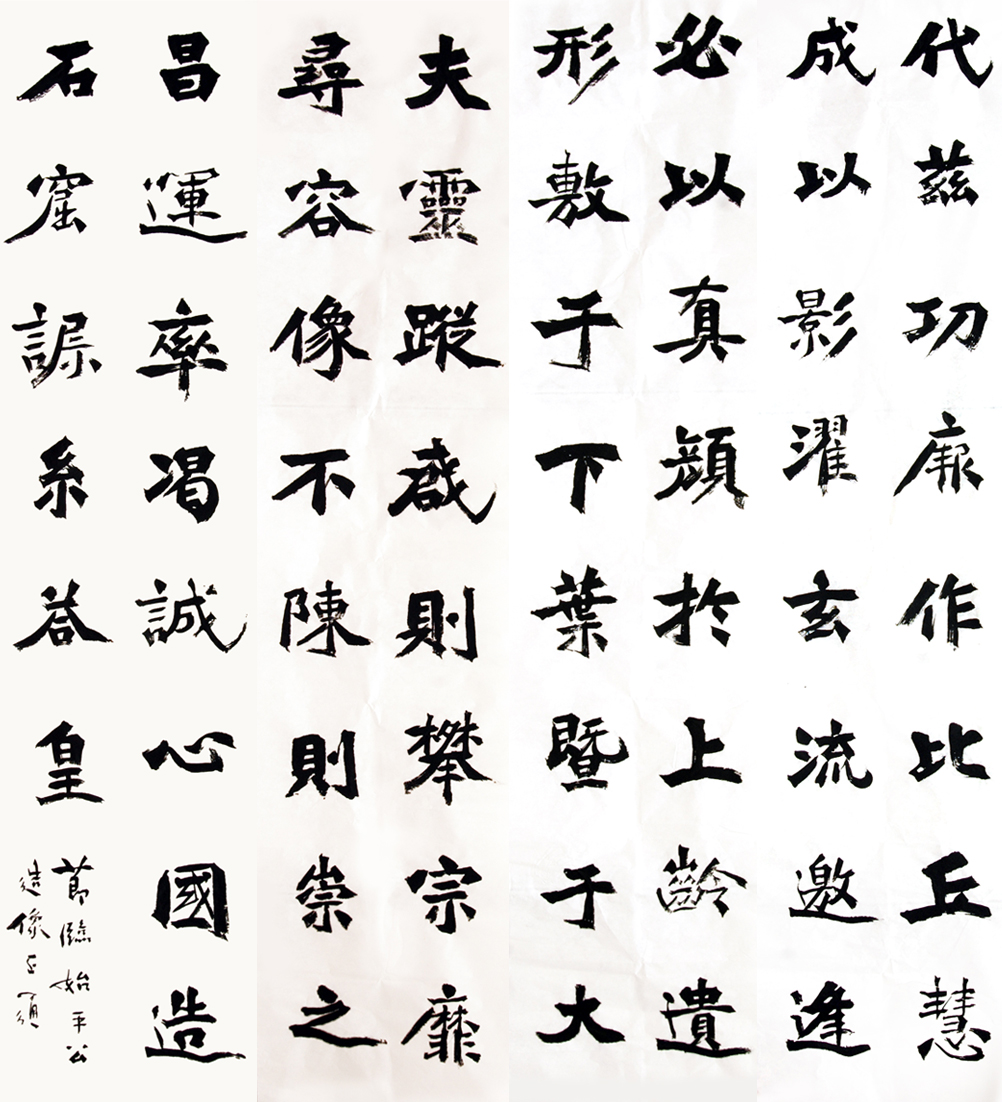 夫靈蹤則攀宗靡
尋容像不陳則崇之
必以真顏於上齡遺
形敷于下葉暨于大
代茲功厥作比丘慧
成以影濯玄流邀逢
昌運率渴誠心國造
石窟糸荅皇
節臨始平公
造像